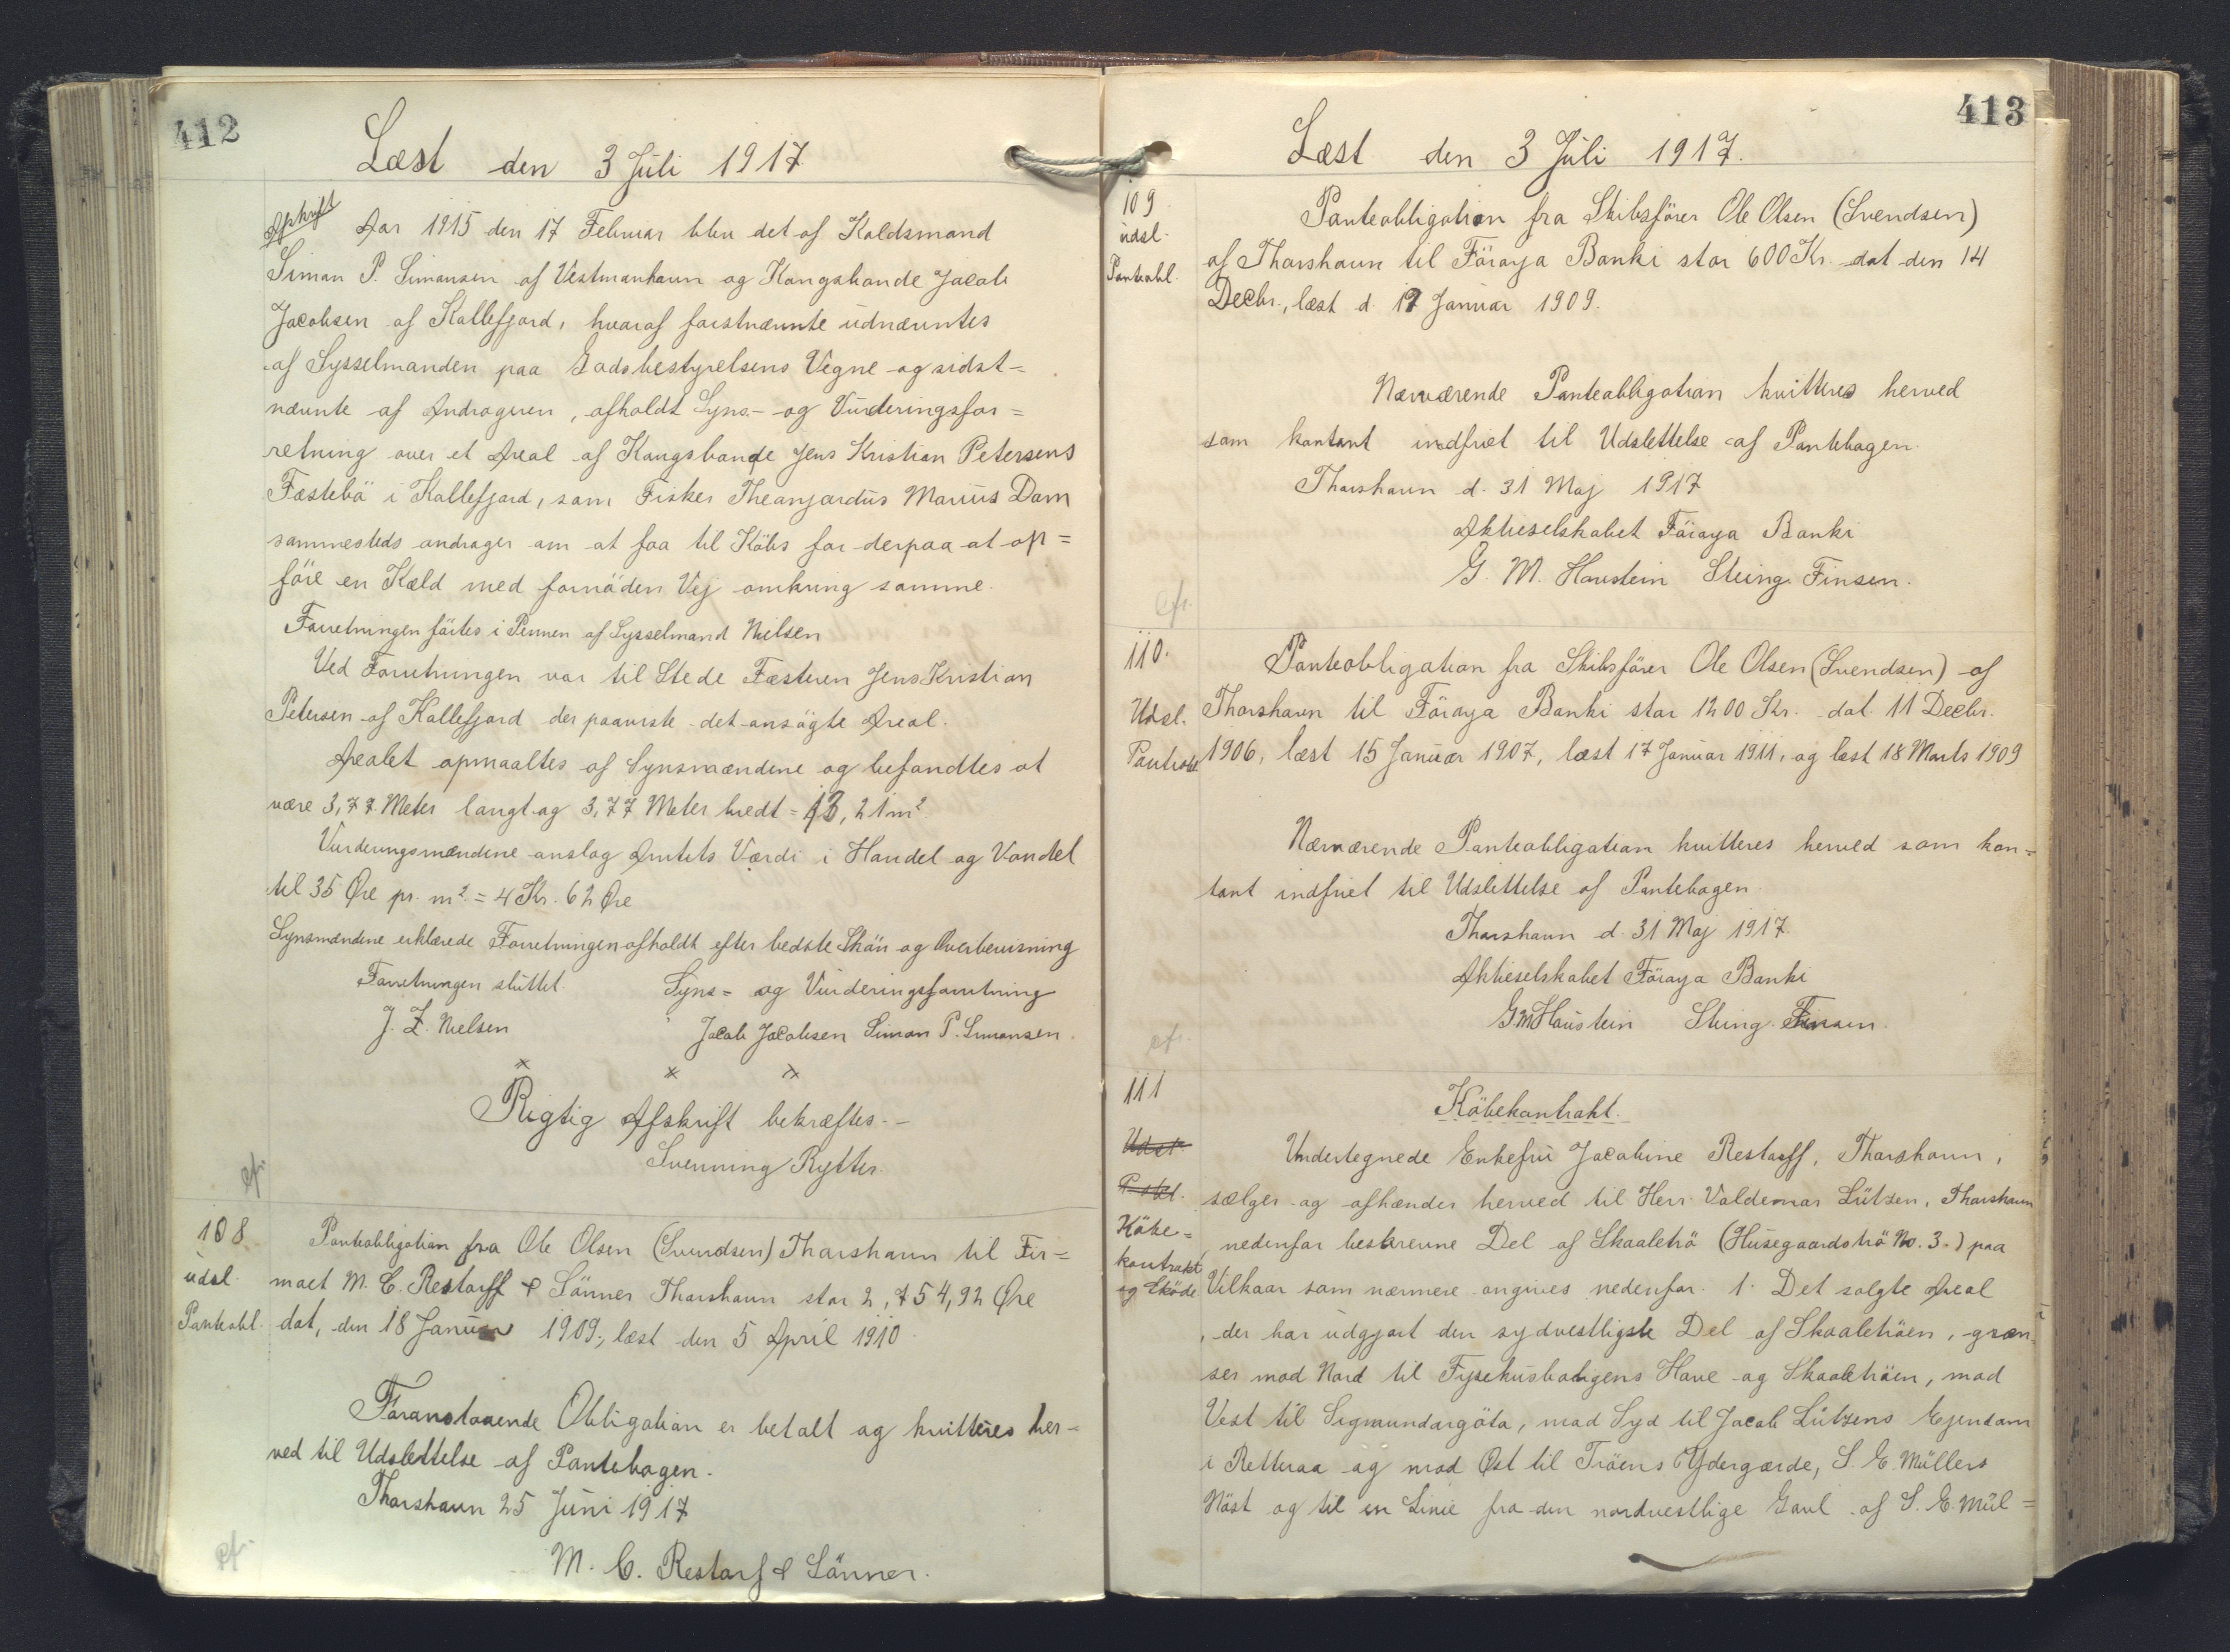 412
Læst den 3 Juli 1917
Afskrift
Aar 1915 den 17 Februar blev det af Koldsmand
Simon P. Simonsen af Vestmanhavn og Kongsbonde Jacob
Jacobsen af Kollefjord, hvoraf førstnævnte udnævntes
af Sysselmanden paa Godsbestyrelsens Vegne og sidst=
nævnte af Andrageren, afholdt Syns- og Vurderingsfor=
retning over et Areal af Kongsbonde Jens Kristian Petersens
Fæstebö i Kollefjord, som Fisker Theangardus Marius Dam
sammesteds andrager om at faa til Köbs for derpaa at op=
före en Kæld med fornöden Vej omkring samme.
Forretningen förtes i Pennen af Sysselmand Nielsen
Ved Forretningen var til Stede Fæsteren Jens Kristian
Petersen af Kollefjord der paaviste det ansögte Areal.
Arealet opmaaltes af Synsmændene og befandtes at
være 3,77 Meter langt og 3,77 Meter bredt = 13,21 m²
Vurderingsmændene anslog Amtets Værdi i Handel og Vandel
til 35 Øre pr. m² = 4 Kr. 62 Øre
Synsmændene erklærede Forretningen afholdt efter bedste Skön og Overbevisning
Forretningen sluttet. Syns= og Vurderingsforretning
J. Z. Nielsen Jacob Jacobsen Simon P. Simonsen.
x x x
Rigtig Afskrift bekræftes.-
Svenning Rytter.
cfr.
108
udsl.
Panteobl.
Panteobligation fra Ole Olsen (Svendsen) Thorshavn til Fir=
maet M. C. Restorff & Sönner Thorshavn stor 2,754,92 Øre
dat, den 18 Januar 1909, læst den 5 April 1910
Foranstaaende Obligation er betalt og kvitteres her=
ved til Udslettelse af Pantebogen.
Thorshavn 25 Juni 1917
cfr.
M. C. Restorf & Sönner.
413
Læst den 3 Juli 1917.
109
udsl.
Panteobl.
Panteobligation fra Skibsförer Ole Olsen (Svendsen)
af Thorshavn til Föroya Banki stor 600 Kr. dat den 14
Decbr., læst d. 17 Januar 1909.
Nærværende Panteobligation kvitteres herved
som kontant indfriet til Udslettelse af Pantebogen.
Thorshavn d. 31 Maj 1917
Aktieselskabet Föroya Banki
G. M. Haustein Steing. Finsen.
cfr.
110.
Udsl.
Panteobl.
Panteobligation fra Skibsförer Ole Olsen (Svendsen) af
Thorshavn til Föroya Banki stor 1200 Kr. dat. 11 Decbr.
1906, læst 15 Januar 1907, læst 17 Januar 1911, og læst 18 Marts 1909
Nærværende Panteobligation kvitteres herved som kon=
tant indfriet til Udslettelse af Pantebogen.
Thorshavn d. 31 Maj 1917.
Aktieselskabet Föroya Banki
GMHaustein Steing. Finsen.
cfr.
111
Udsl.
P-obl.
Köbe=
kontrakt
og Sköde
Köbekontrakt.
Undertegnede Enkefru Jacobine Restorff, Thorshavn,
sælger og afhænder herved til Herr Valdemar Lützen, Thorshavn
nedenfor beskrevne Del af Skaaletrö (Husegaardströ No. 3.) paa
Vilkaar som nærmere angives nedenfor. 1. Det solgte Areal
, der har udgjort den sydvestligste Del af Skaaletröen, græn=
ser mod Nord til Fysekusboligens Have og Skaaletröen, mod
Vest til Sigmundargöta, mod Syd til Jacob Lützens Ejendom
i Retteraa og mod Øst til Tröens Ydergærde, S. E. Müllers
Nöst og til en Linie fra den nordvestlige Gavl af S. E. Mül=